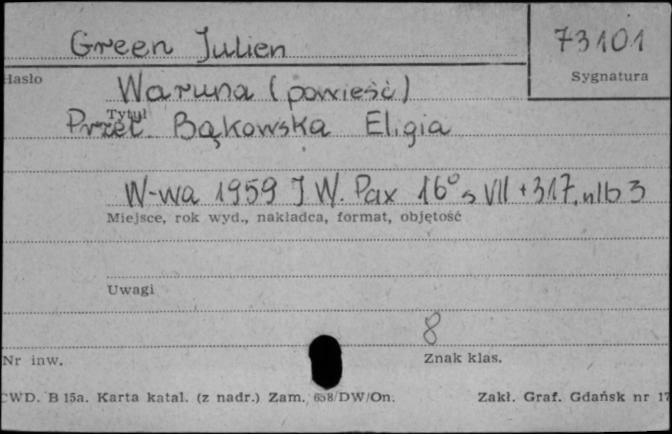 Green Julien
73101
Hasło
Sygnatura
Waruna (powieść)
Tytuł
Przeł. Bąkowska Eligia
W-wa 1959 I W. Pax 16° s VII + 317, nlb 3
Miejsce, rok wyd., nakładca, format, objętość
Uwagi
8
Nr inw.
Znak klas.
CWD. B 15a. Karta katal. (z nadr.) Zam. 658/DW/On.
Zakł. Graf. Gdańsk nr 17